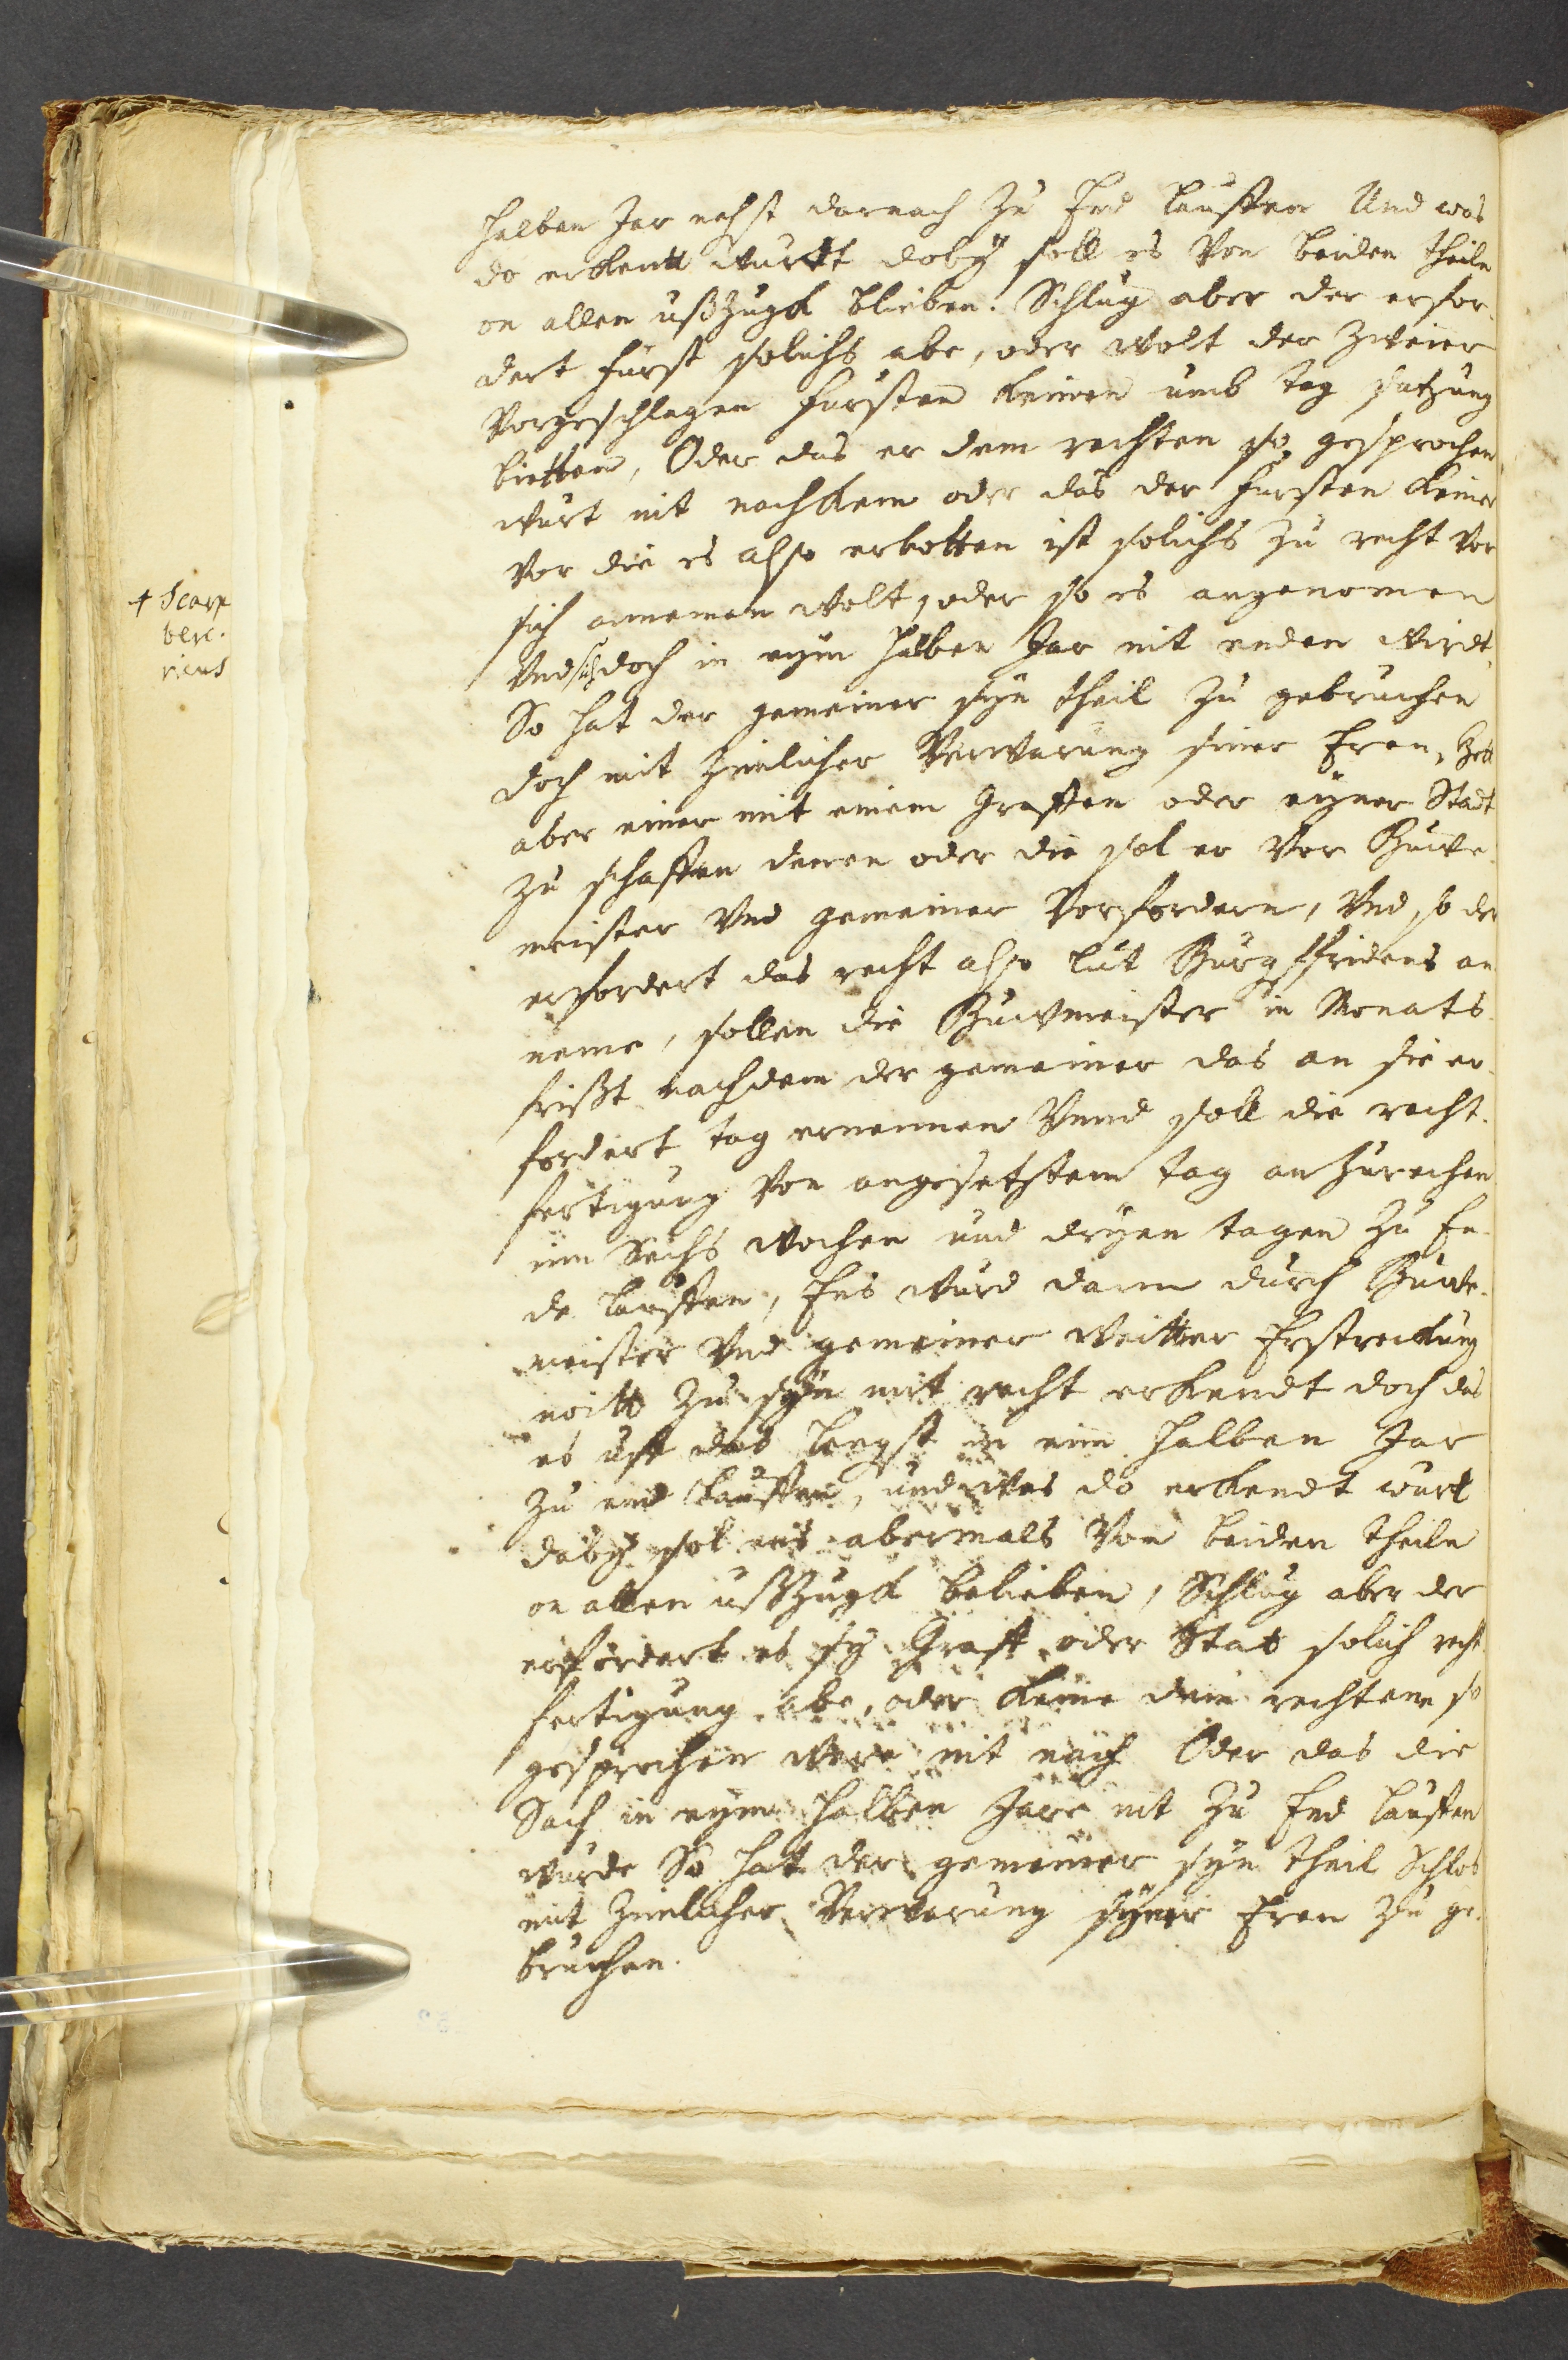 halben Jar nehst darnach zu End lauffen Und was
do erkentt wurtt doby soll es von beiden theiln
on allen ußzugk blieben. Schlug aber der erfor-
dert Fürst solichs abe, oder wolt der zweier
vorgeschlagen Fursten keinen umb tag satzung
bietten, Oder das er dem rechten so gesprochen
wurt nit nachkem oder das der Fursten keiner
vor die es also erbotten ist solichs zu recht vor
sich annemen wolt, oder so es angenomen
Vnd sich doch in eym halben Jar nit enden wirdt,
So hat der gemeiner syn theil zu gebruchen
doch mit zimlicher Verwarung siner Eren, Hett
aber einer mit einem Graffen oder eyner Stadt
zu schaffen denen oder die sol er vor Buwe-
meister Vnd gemeiner vorfordern, Vnd so der
erfordert das recht also lut Burgffridens an
neme, sollen die Buwmeister in Monats
frißt nachdem der gemeiner das an sie er-
fordert tag ernennen Vnnd soll die recht-
fertigung von angesetztem tag an zurechen
inn Sechs wochen und dryen tagen zu En-
de lauffen, Ens wurd dann durch Buwe-
meister Vnd gemeiner weitter Erstreckung
noitt zu syn mit recht erkendt doch das
es uff das lengst in eim halben Jar
zu end lauffen, und was do erkendt wurt
daby sol ens abermals von beiden theiln
on allen ußzugk belieben, Schlug aber der
erfordert es sy Graff oder Stat solich recht
fertigung abe, oder keme dem rechten so
gesprochen were nit nach Oder das die
Sach in eym halben Jare nit zu End lauffen
wurde So hat der gemeiner syn theil Schlos
mit zimlicher Verwarung syner Eren zu ge-
bruchen.
+ Scarp
berc.
ricus